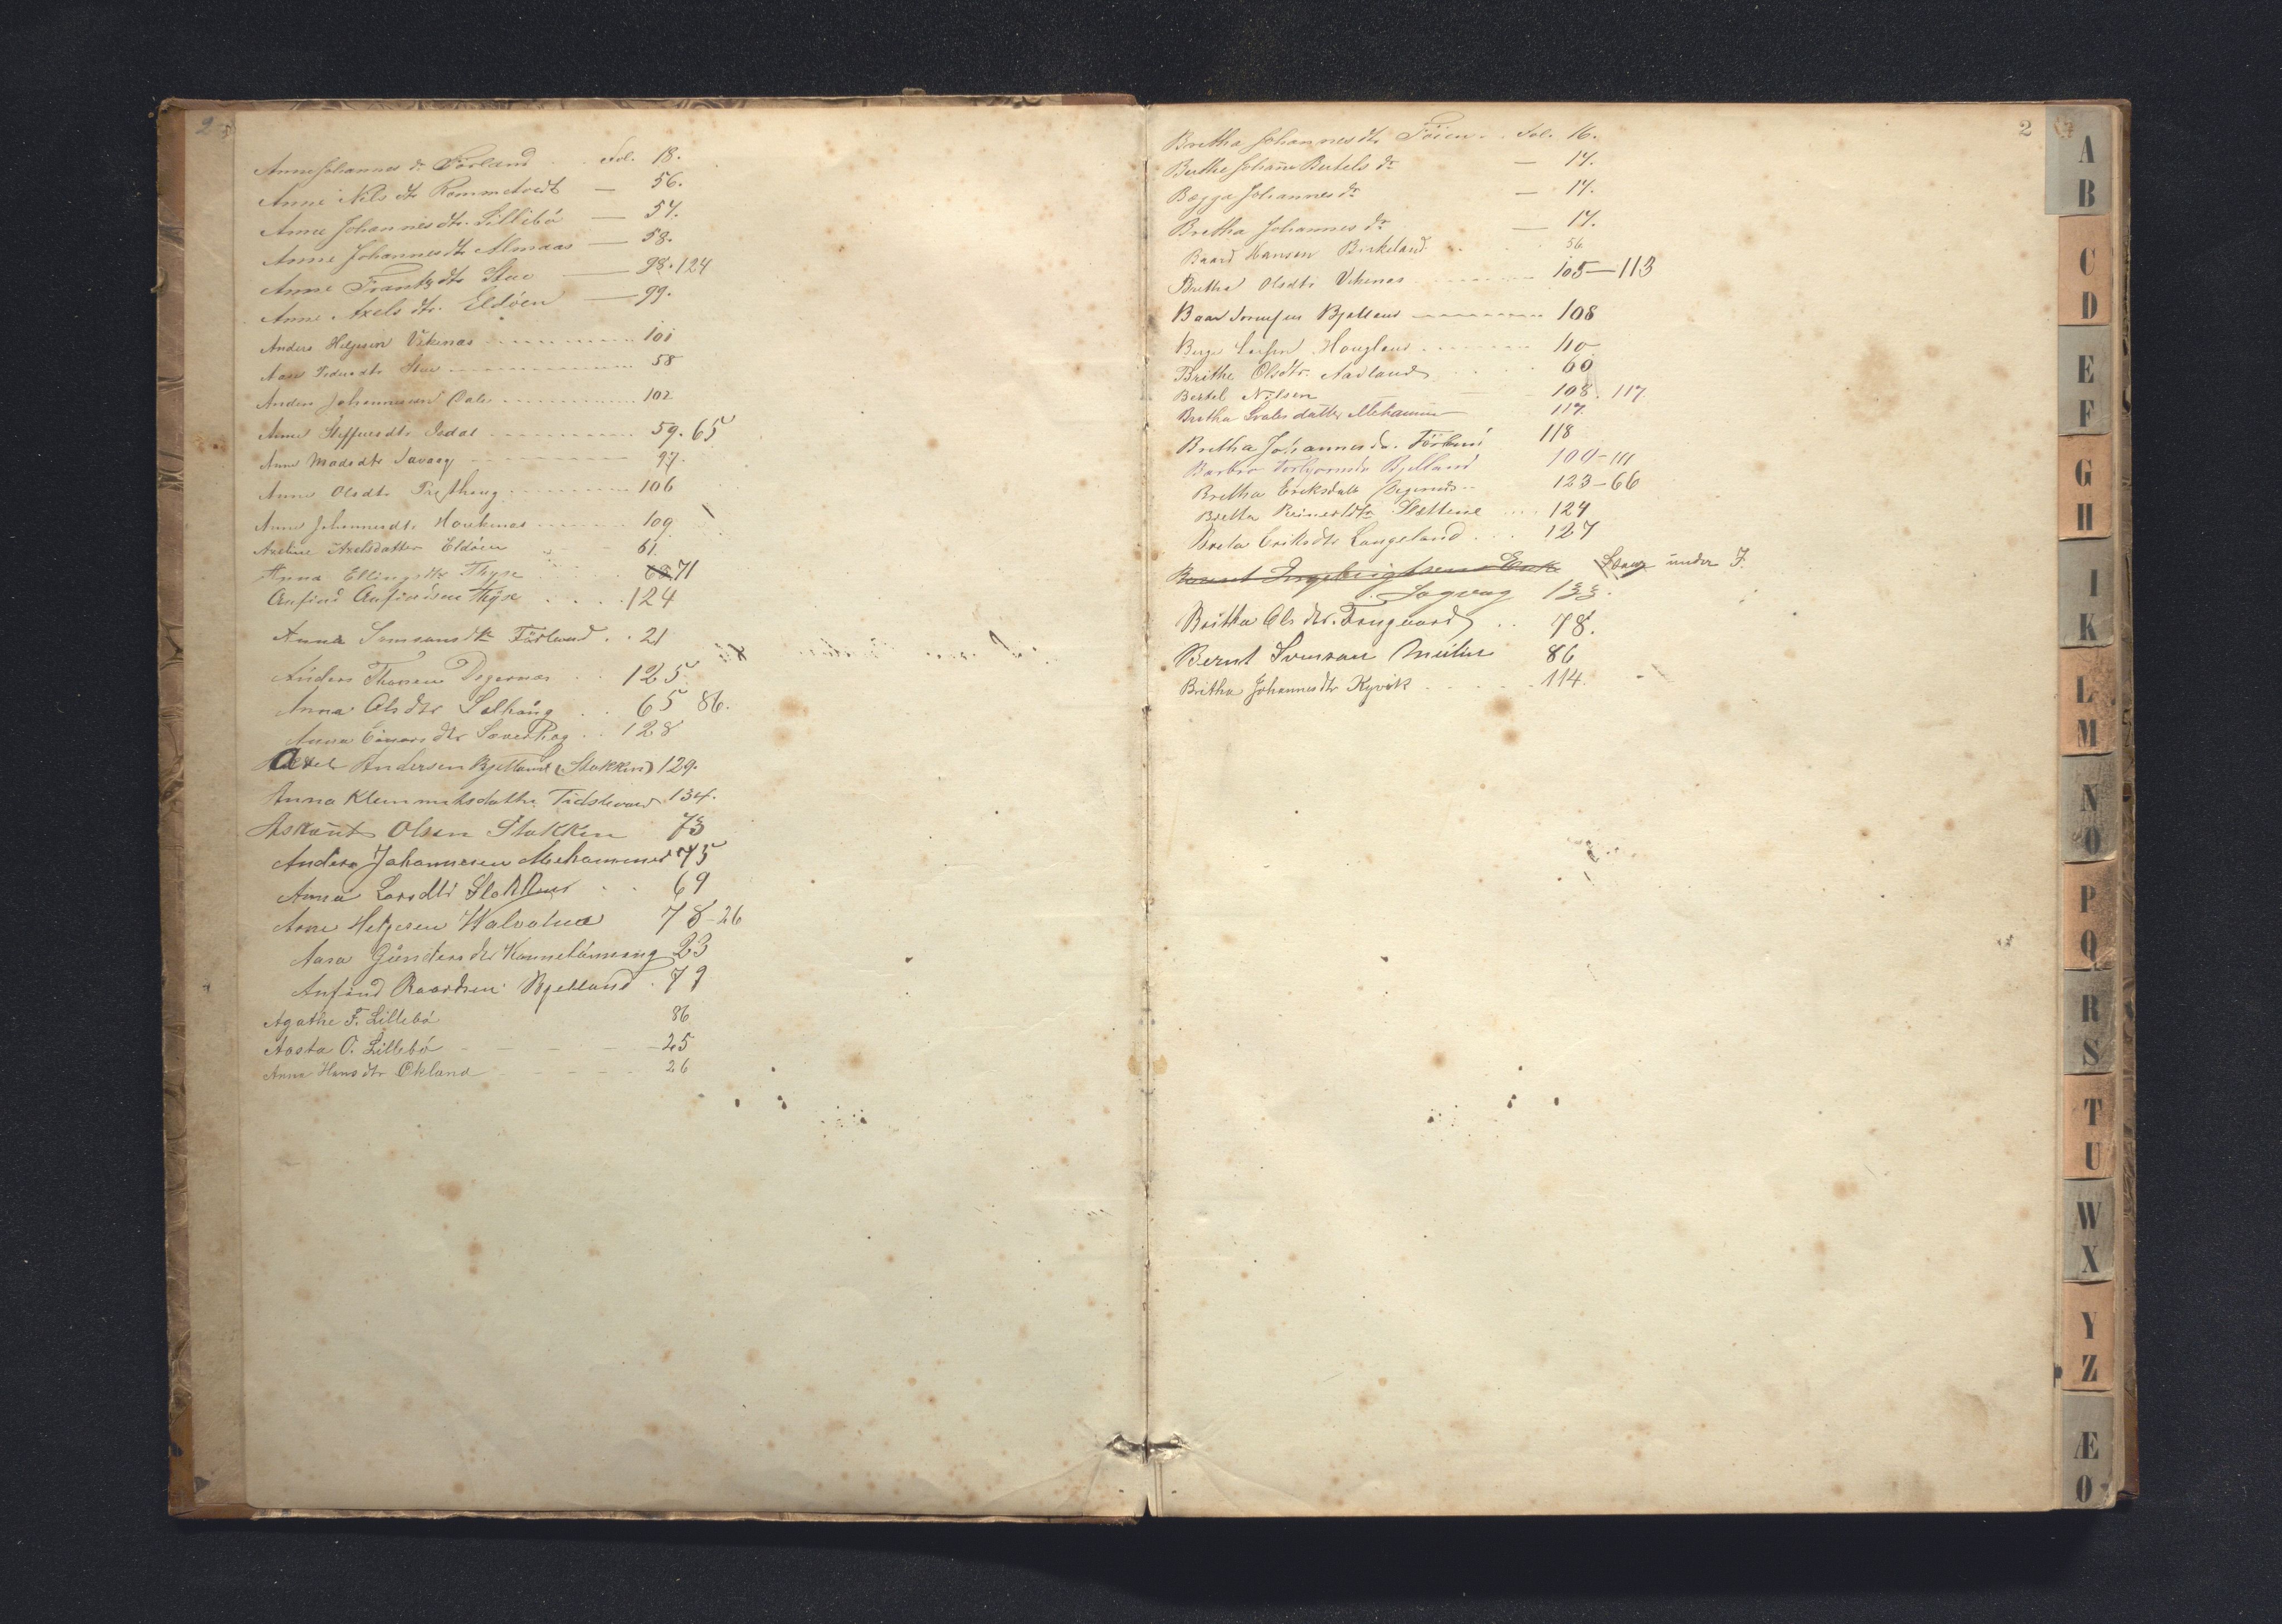 2
Anne Johannes dr Förland . . Fol. 18.
Anne Nils dtr Rommetvedt — 56.
Anne Johannesdtr. Lillibö — 57.
Anne Johannesdtr Almaas — 58.
Anne Frantzdtr Stue — 98. 124
Anne Axels dtr. Eldöen — 99.
Anders Helgesen Vikenes 101
Pedersdtr Stue 58
Anders Johannesen Dale 102
Anne Steffensdtr Dedal 59. 65
Anne Madsdtr Savaag 97.
Anne Olsdtr 106
Anne Johannesdtr. 109
Axeline Axelsdatter Eldöen 61.
Anna Ellingsdtr Thyse 71
Anfind Anfindsen Thyse . . . . 124
Anna Simonsdtr Förland . . 21
Anders Thorsen Degernes . . 125
Anna Olsdtr Solhaug . . 65 86.
Anna Einarsdtr . . 128
Axel Andersen Bjelland (Stokken) 129.
Anna Klemmetsdatter 134.
Askont Olsen Stokken 73
Anders Johannesen Mehammer 75
Anna Larsdtr Stokken . . 69
Arne Helgesen Valvatne 78-26
Aasa Gunders dtr 23
Anfind Baardsen Bjelland . 79
Agathe F. Lillebö 86
Aasta O. Lillebö - - - - - 25
Anna Hans dtr Økland - - - - - 26
2
Bretha Johannesdtr Föien . . Fol. 16.
Berthe Johanne Bertels dr — 17.
Bægga Johannes dr — 17.
Bretha Johannes dr — 17.
Baard Hansen Birkeland 56
Bretha Olsdtr Vikenes 105—113
Baar Bjelland 108
Berge Larsen Haugland 110
Brithe Olsdtr. Aadland 60
Bertel Nilsen 108. 117.
Bretha datter Mehammer 117.
Bretha Johannesdr. Förland 118
Barbro Torbjornsdr Bjelland 100-111
Bretha Eriksdatt Degernes 123-66
Bretta Reinertdtr Slettene .... 124
Breta Eriksdtr Langeland . . . 127
Bernt Ingebrigtsens Enke under J.
Sagvag 133.
Britha Ols dtr. Trugaard . . 78.
Bernt Svensen 86
Britha Johannesdtr Kyvik 114.
A
B
C
D
E
F
G
H
I
K
L
M
N
O
P
Q
R
S
T
U
W
X
Y
Z
Æ
O